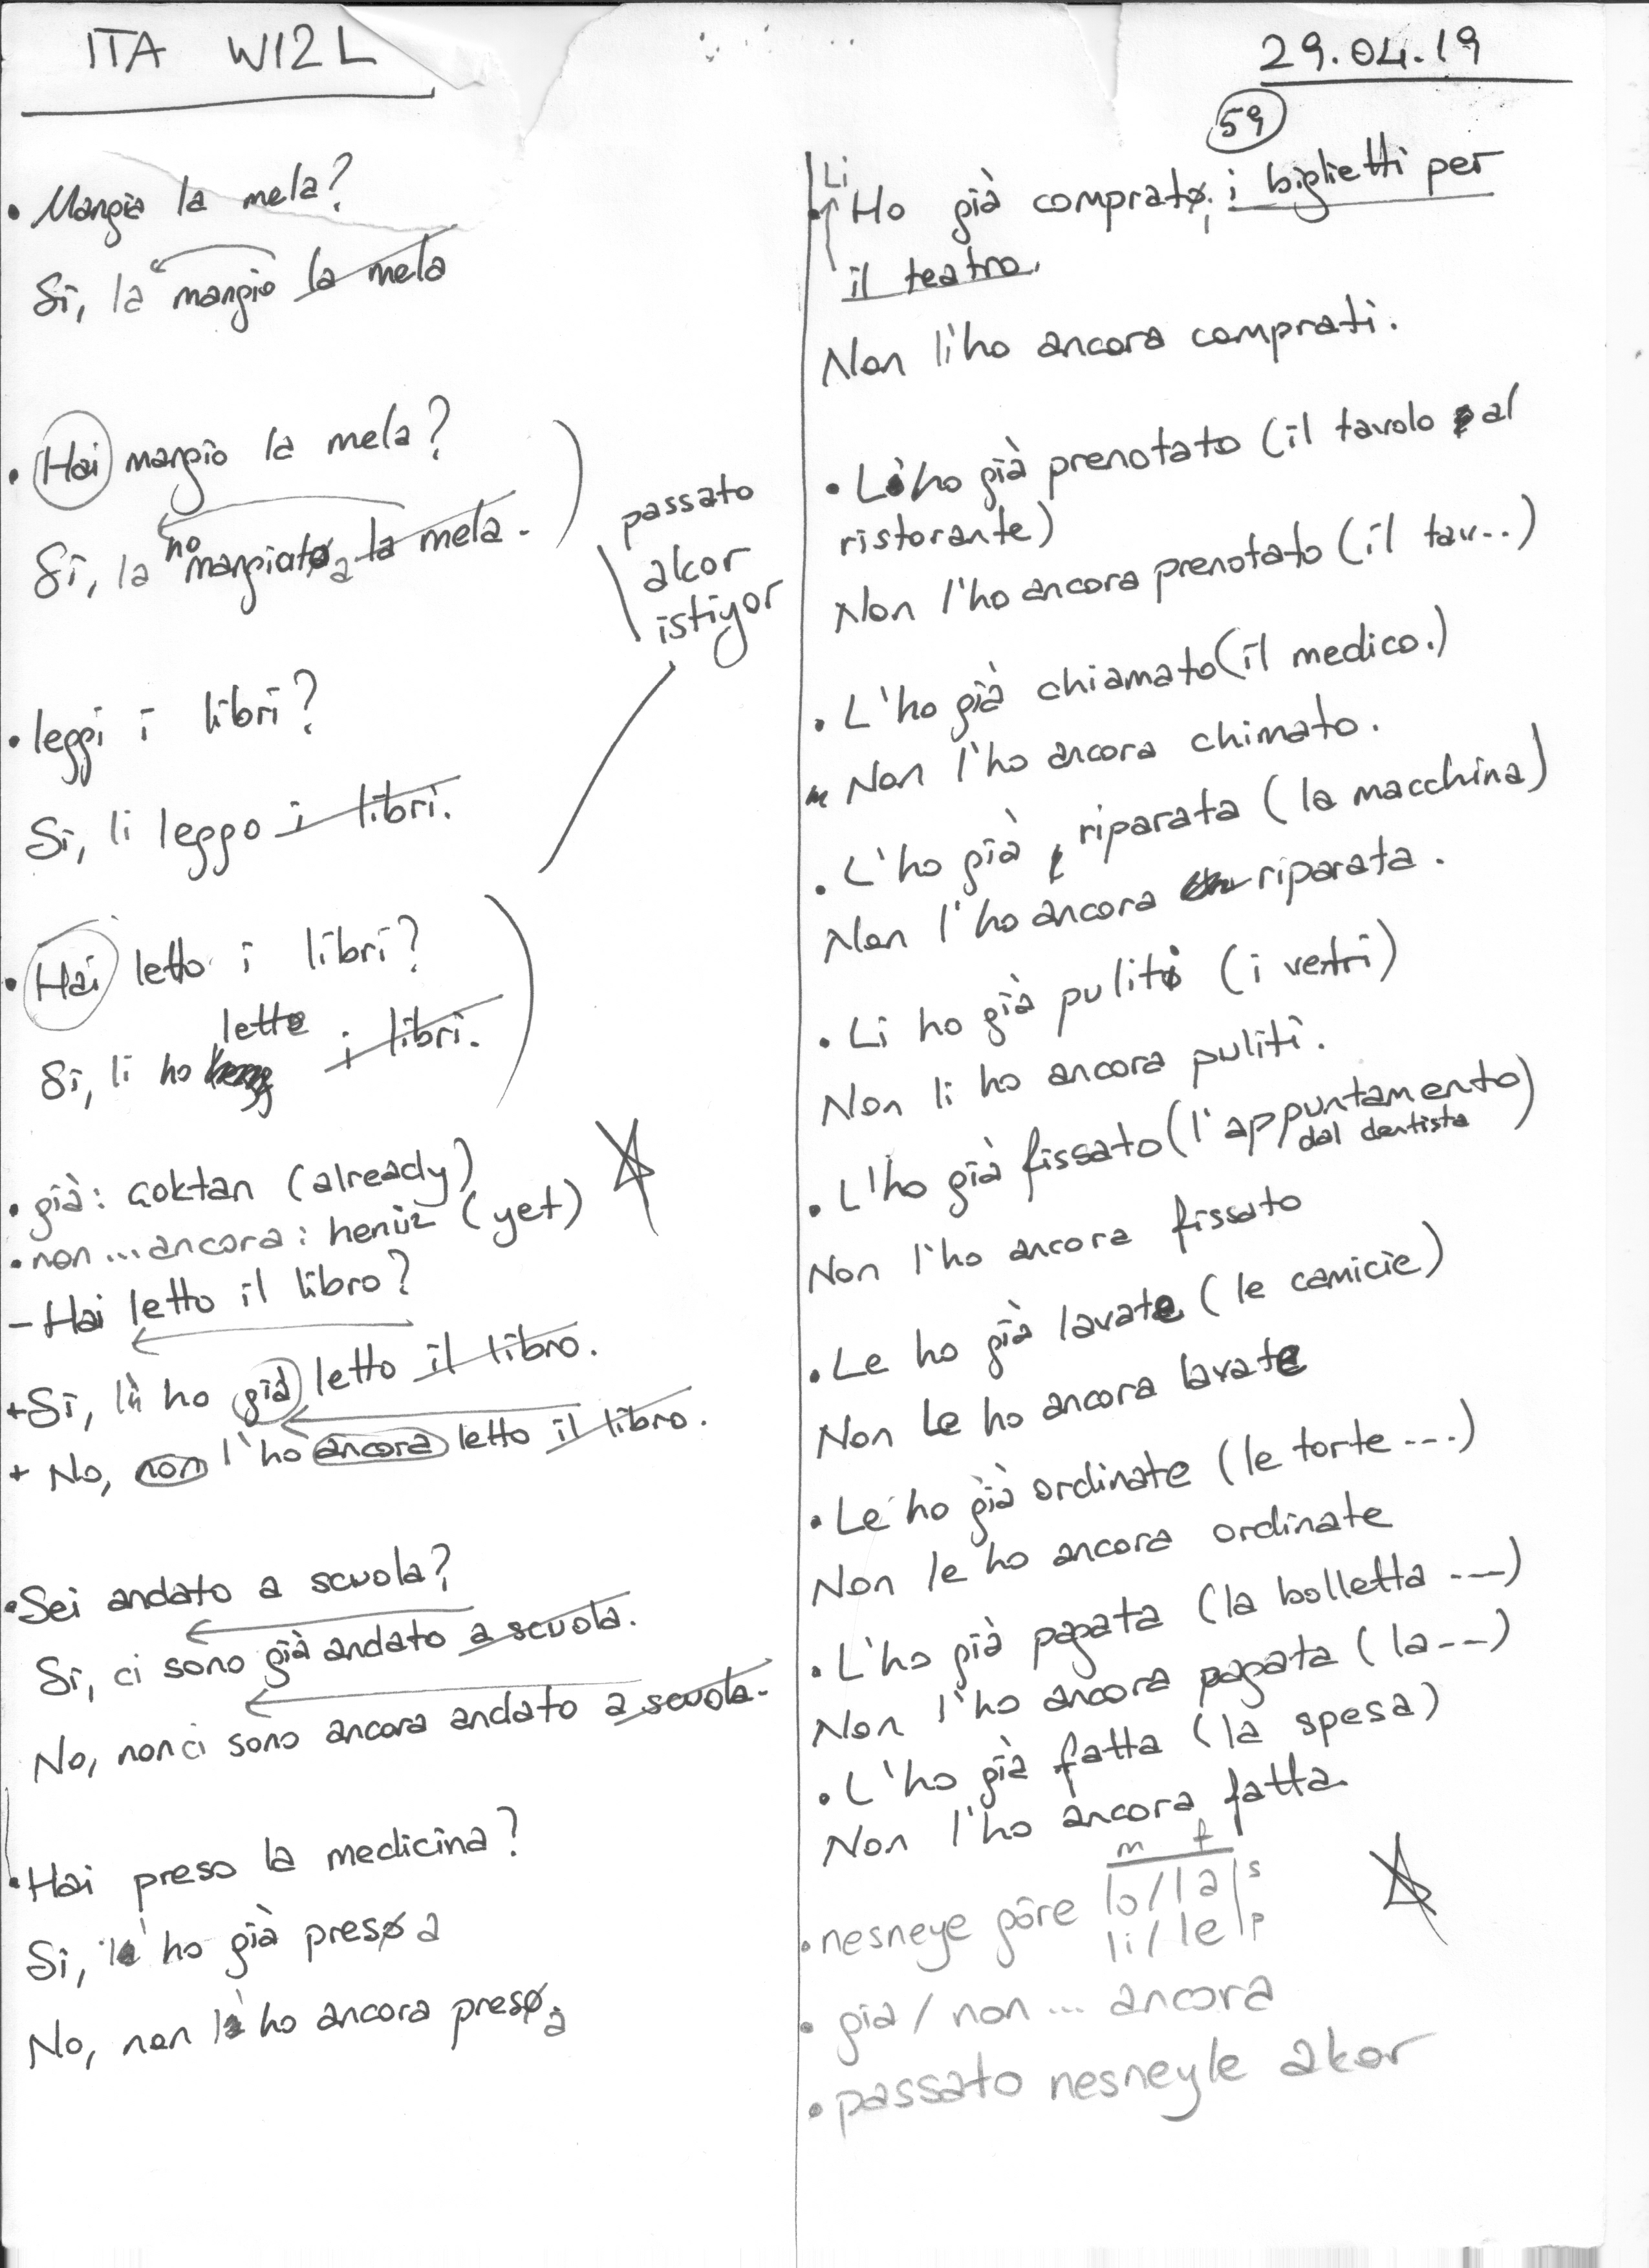 ITA W12L
29.04.19
59
• Mangia la mela?
Si, la mangio la mela
• Hai mangio la mela?
Si, la ho mangiato a la mela.
passato
akor
istiyor
• leggi i libri?
Si, li leggo i libri.
• Hai letto i libri?
lette
Si, li ho i libri.
• già: çoktan (already)
• non ... ancora: henüz (yet)
- Hai letto il libro?
+ Si, l' ho già letto il libro.
+ No, non l'ho ancora letto il libro.
• Sei andato a scuola?
Si, ci sono già andato a scuola.
No, non ci sono ancora andato a scuola.
• Hai preso la medicina?
Si, l' ho già preso a
No, non l' ho ancora preso a
Li
• Ho già comprato i i biglietti per
il teatro.
Non li ho ancora comprati.
• L'ho già prenotato (il tavolo al
ristorante)
Non l'ho ancora prenotato (il tav...)
• L'ho già chiamato (il medico.)
Non l'ho ancora chimato.
• L'ho già riparata (la macchina)
Non l'ho ancora riparata.
• Li ho già puliti (i vetri)
Non li ho ancora puliti.
• L'ho già fissato (l'appuntamento)
dal dentista
Non l'ho ancora fissato
• Le ho già lavate (le camicie)
Non Le ho ancora lavate
• Le ho già ordinate (le torte ....)
Non le ho ancora ordinate
• L'ho già pagata (la bolletta ---)
Non l'ho ancora pagata (la --)
• L'ho già fatta (la spesa)
Non l'ho ancora fatta.
m f
• nesneye göre lo/la s
li/le p
• gia / non ... ancora
• passato nesneyle akor